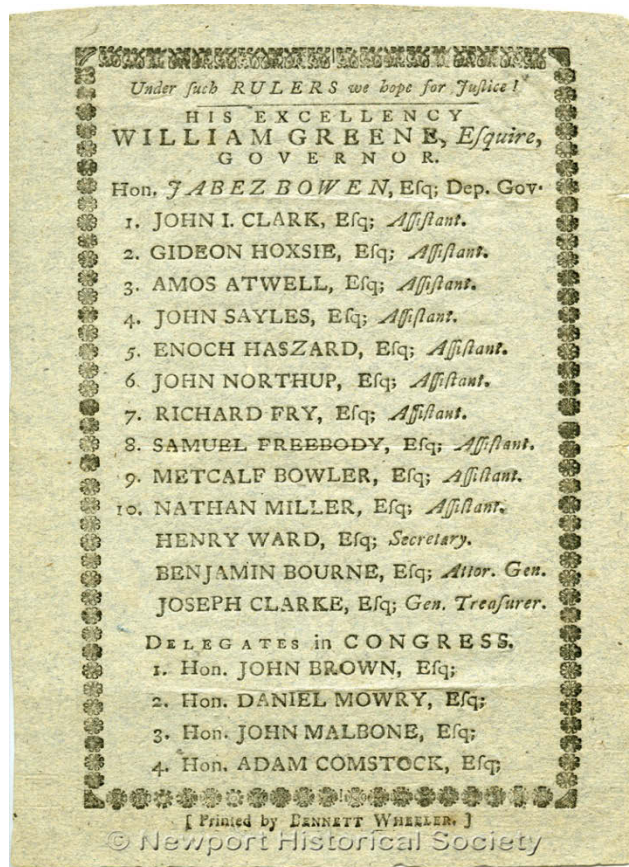 Under ſuch RULERS we hope for Juſtice!
HIS EXCELLENCY
WILLIAM GREENE, Eſquire,
GOVERNOR.
Hon. JABEZ BOWEN, Eſq; Dep. Gov.
1. JOHN I. CLARK, Eſq; Aſſiſtant.
2. GIDEON HOXSIE, Eſq; Aſſiſtant.
3. AMOS ATWELL, Eſq; Aſſiſtant.
4. JOHN SAYLES, Eſq; Aſſiſtant.
5. ENOCH HASZARD, Eſq; Aſſiſtant.
6. JOHN NORTHUP, Eſq; Aſſiſtant.
7. RICHARD FRY, Eſq; Aſſiſtant.
8. SAMUEL FREEBODY, Eſq; Aſſiſtant.
9. METCALF BOWLER, Eſq; Aſſiſtant.
10. NATHAN MILLER, Eſq; Aſſiſtant.
HENRY WARD, Eſq; Secretary.
BENJAMIN BOURNE, Eſq; Attor. Gen.
JOSEPH CLARKE, Eſq; Gen. Treaſurer.
DELEGATES in CONGRESS.
1. Hon. JOHN BROWN, Eſq;
2. Hon. DANIEL MOWRY, Eſq;
3. Hon. JOHN MALBONE, Eſq;
4. Hon. ADAM COMSTOCK, Eſq;
[ Printed by BENNETT WHEELER. ]
© Newport Historical Society